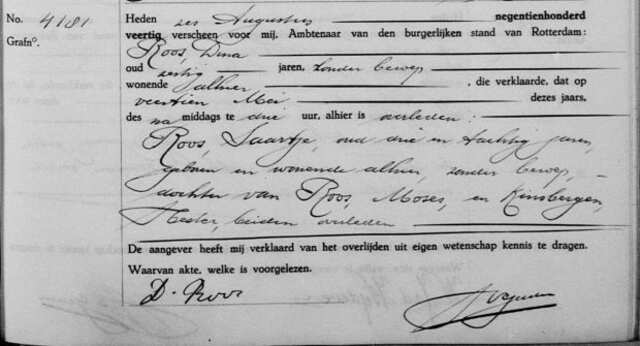 No. 4181
Heden zes Augustus negentienhonderd
Grafno.
veertig verscheen voor mij, Ambtenaar van den burgerlijken stand van Rotterdam:
Roos, Dina
oud zestig jaren, zonder beroep
wonende alhier, die verklaarde, dat op
veertien Mei dezes jaars,
des namiddags te drie uur, alhier is overleden:
Roos, Saartje, oud drie en tachtig jaren,
geboren en wonende alhier, zonder beroep,
dochter van Roos, Moses, en Kinsbergen,
Hester, beiden overleden
De aangever heeft mij verklaard van het overlijden uit eigen wetenschap kennis te dragen.
Waarvan akte, welke is voorgelezen.
D. Roos